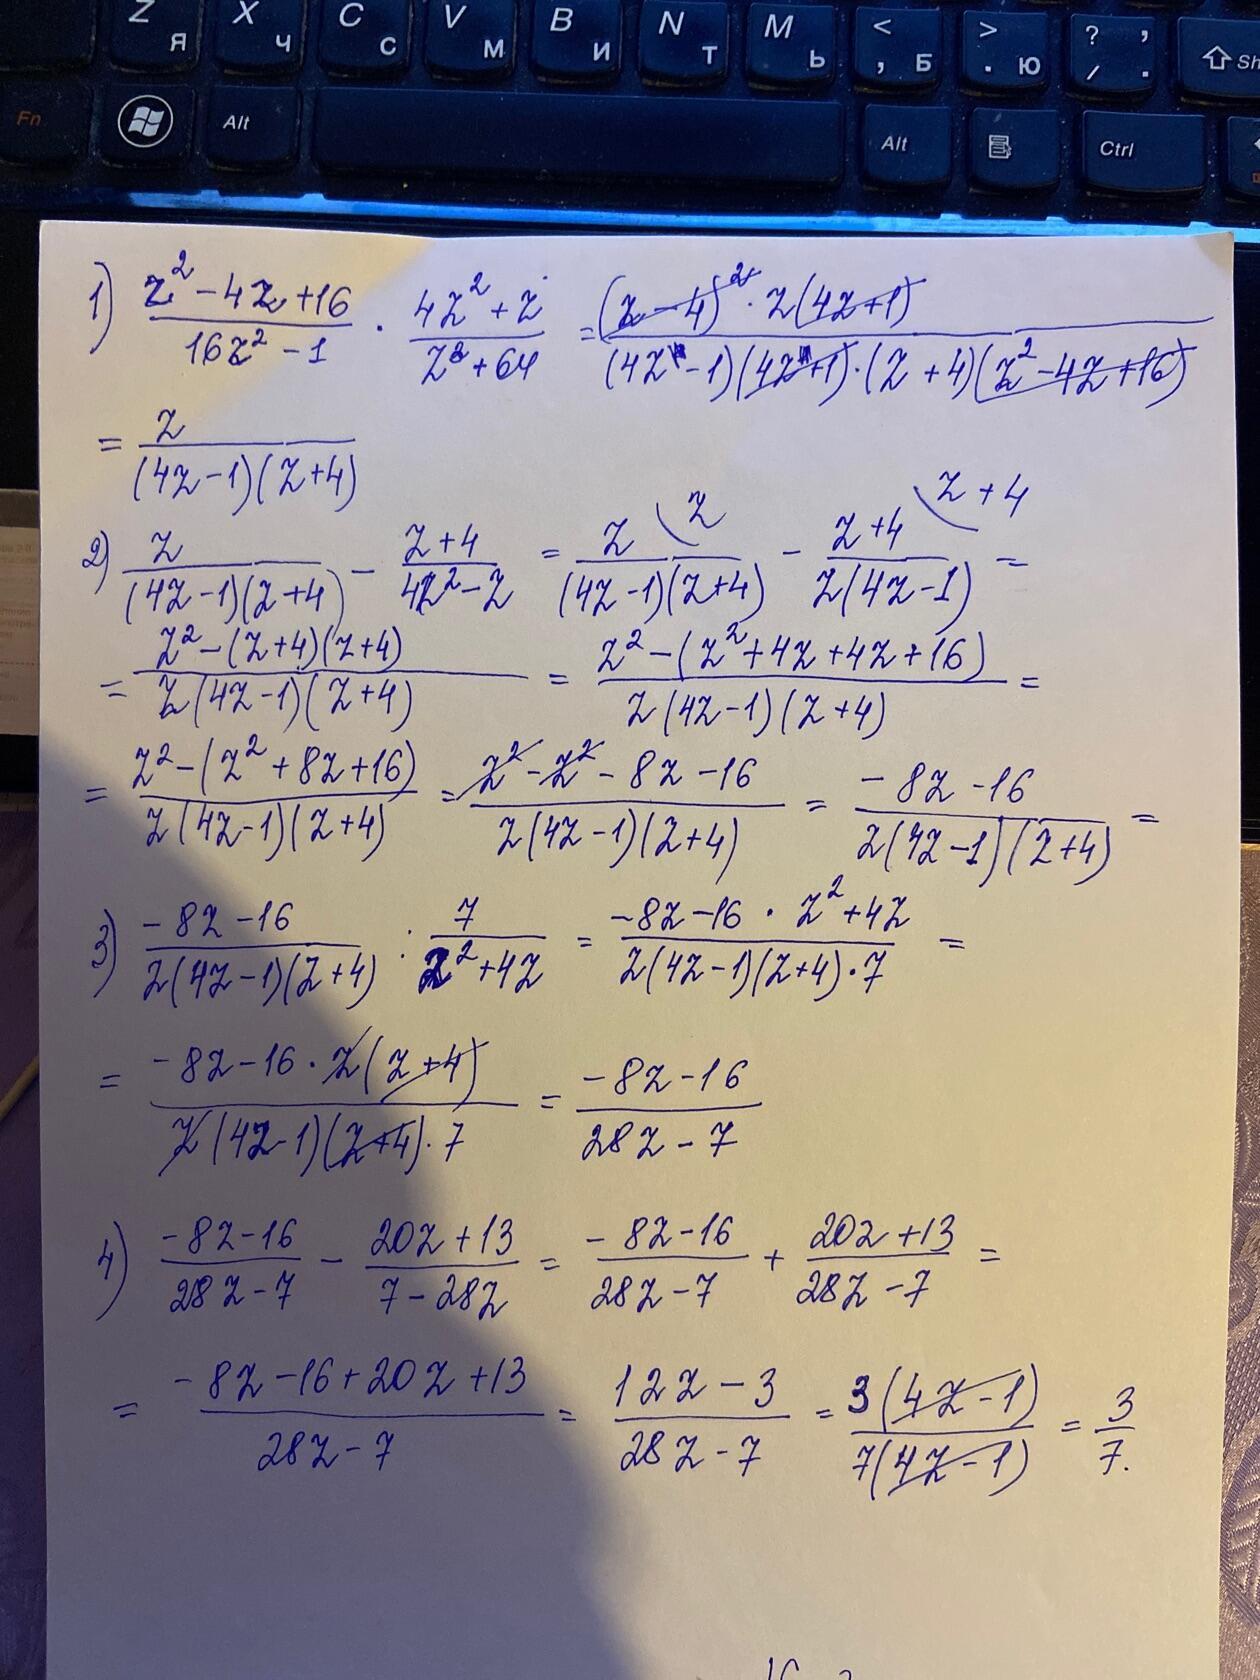 Z Я X Ч C С V М B И N Т M Ь < , Б > . Ю ? , / . Sh
Fn Alt Alt Ctrl
1) (z² - 4z + 16)/(16z² - 1) · (4z² + z)/(z³ + 64) = ((z - 4)² · z(4z + 1))/((4z - 1)(4z + 1) · (z + 4)(z² - 4z + 16))
= z/((4z - 1)(z + 4))
2) z/((4z - 1)(z + 4)) - (z + 4)/(4z² - z) = z/((4z - 1)(z + 4)) \z - (z + 4)/(z(4z - 1)) \z + 4 =
= (z² - (z + 4)(z + 4))/(z(4z - 1)(z + 4)) = (z² - (z² + 4z + 4z + 16))/(z(4z - 1)(z + 4)) =
= (z² - (z² + 8z + 16))/(z(4z - 1)(z + 4)) = (z² - z² - 8z - 16)/(z(4z - 1)(z + 4)) = (-8z - 16)/(z(4z - 1)(z + 4)) =
3) (-8z - 16)/(z(4z - 1)(z + 4)) : 7/(z² + 4z) = (-8z - 16 · z² + 4z)/(z(4z - 1)(z + 4) · 7) =
= (-8z - 16 · z(z + 4))/(z(4z - 1)(z + 4) · 7) = (-8z - 16)/(28z - 7)
4) (-8z - 16)/(28z - 7) - (20z + 13)/(7 - 28z) = (-8z - 16)/(28z - 7) + (20z + 13)/(28z - 7) =
= (-8z - 16 + 20z + 13)/(28z - 7) = (12z - 3)/(28z - 7) = 3(4z - 1)/7(4z - 1) = 3/7.